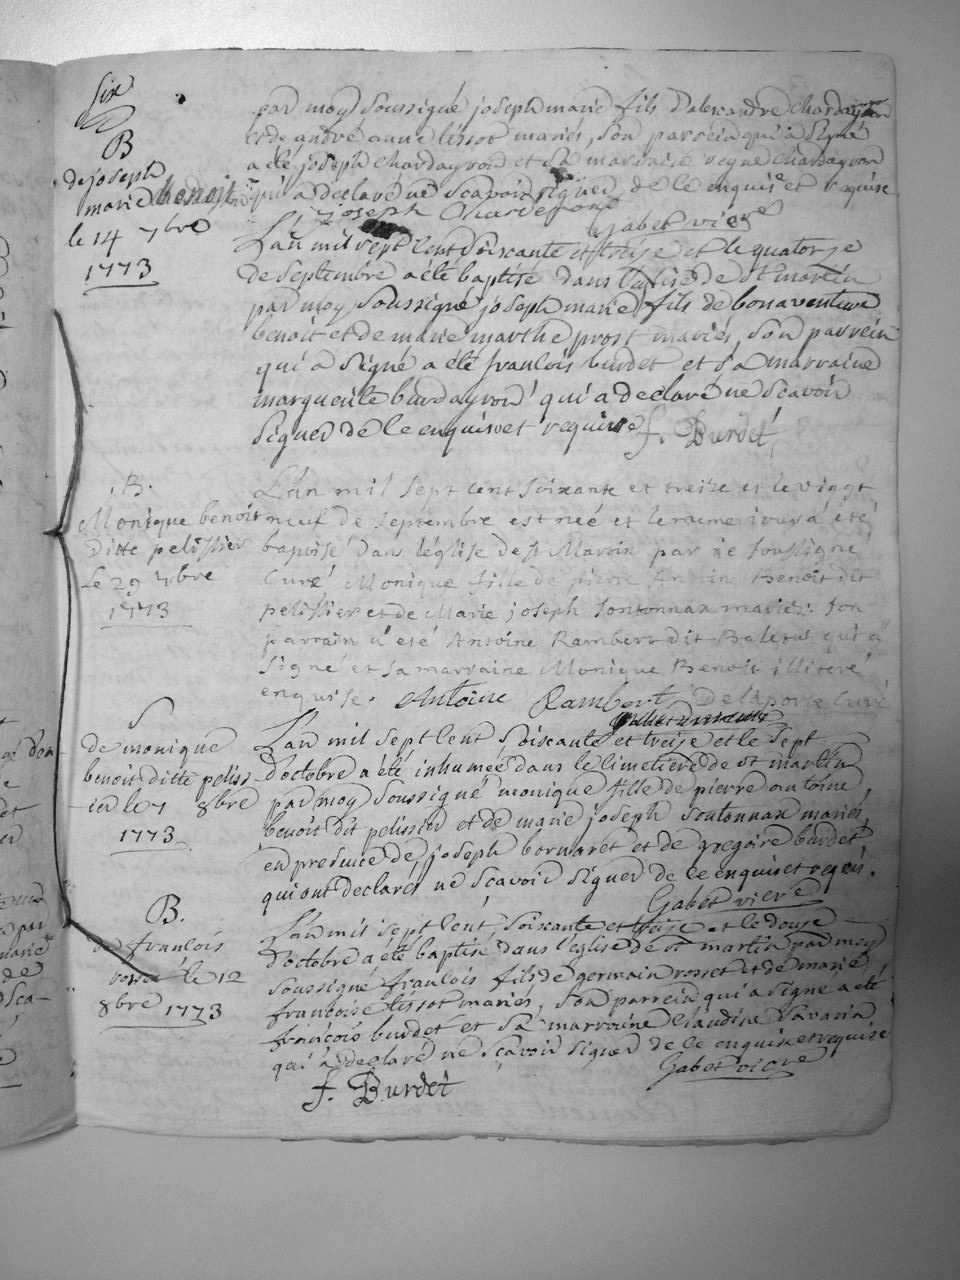 six
par moy soussigné joseph marie fils d'alexandre chardayron
et de andré anne tissot mariés, son parrein qui a signé
a été joseph chardayron et sa marraine reyne chardayron
qui a déclaré ne scavoir signer de ce enquise et requise
joseph Chardeyron
gabet vicre
B
de joseph
marie benoit
le 14 7bre
1773
L'an mil sept cent soixante et treise et le quatorze
de septembre a été baptisé dans l'église de st martin
par moy soussigné joseph marie fils de bonaventure
benoit et de marie marthe prost mariés, son parrein
qui a signé a été francois burdet et sa marraine
marguerite burdayron qui a declaré ne scavoir
signer de ce enquise et requise f. Burdet
B.
Monique benoit
ditte pelissier
le 29 7bre
1773
L'an mil sept cent soixante et treize et le vingt
neuf de septembre est néé et le meme jour a été
baptisé dans l'église de st Martin par je soussigné
Curé Monique fille de pierre Antoine Benoit dit
pelissier et de Marie joseph fontonnax mariez: son
parrain a été Antoine Rambert dit qui a
signé et sa marraine Monique Benoit illiteré
enquise. Antoine Rambert Delaporte Curé
S
de monique
benoit ditte peliss
ier le 7 8bre
1773
L'an mil sept cent soixante et treise et le sept
d'octobre a été inhumée dans le cimetière de st martin
par moy soussigné monique fille de pierre antoine
benoit dit pelissier et de marie joseph soutonnax mariés
en presence de joseph bornaret et de gregoire burdet
qui ont declarés ne scavoir signer de ce enquis et requis.
Gabet vicre
B.
de francois
rosset le 12
8bre 1773
L'an mil sept cent, soixante et treise et le douse
d'octobre a été baptisé dans l'église de st martin par moy
soussigné francois fils de germain rosset et de marie
francoise tissot mariés, son parrein qui a signé a été
francois burdet et sa marraine claudine savarin
qui a declaré ne scavoir signer de ce enquise et requise
Gabet vicre
f. Burdet